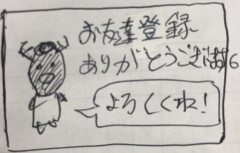 お友達登録
ありがとうございます
よろしくね!